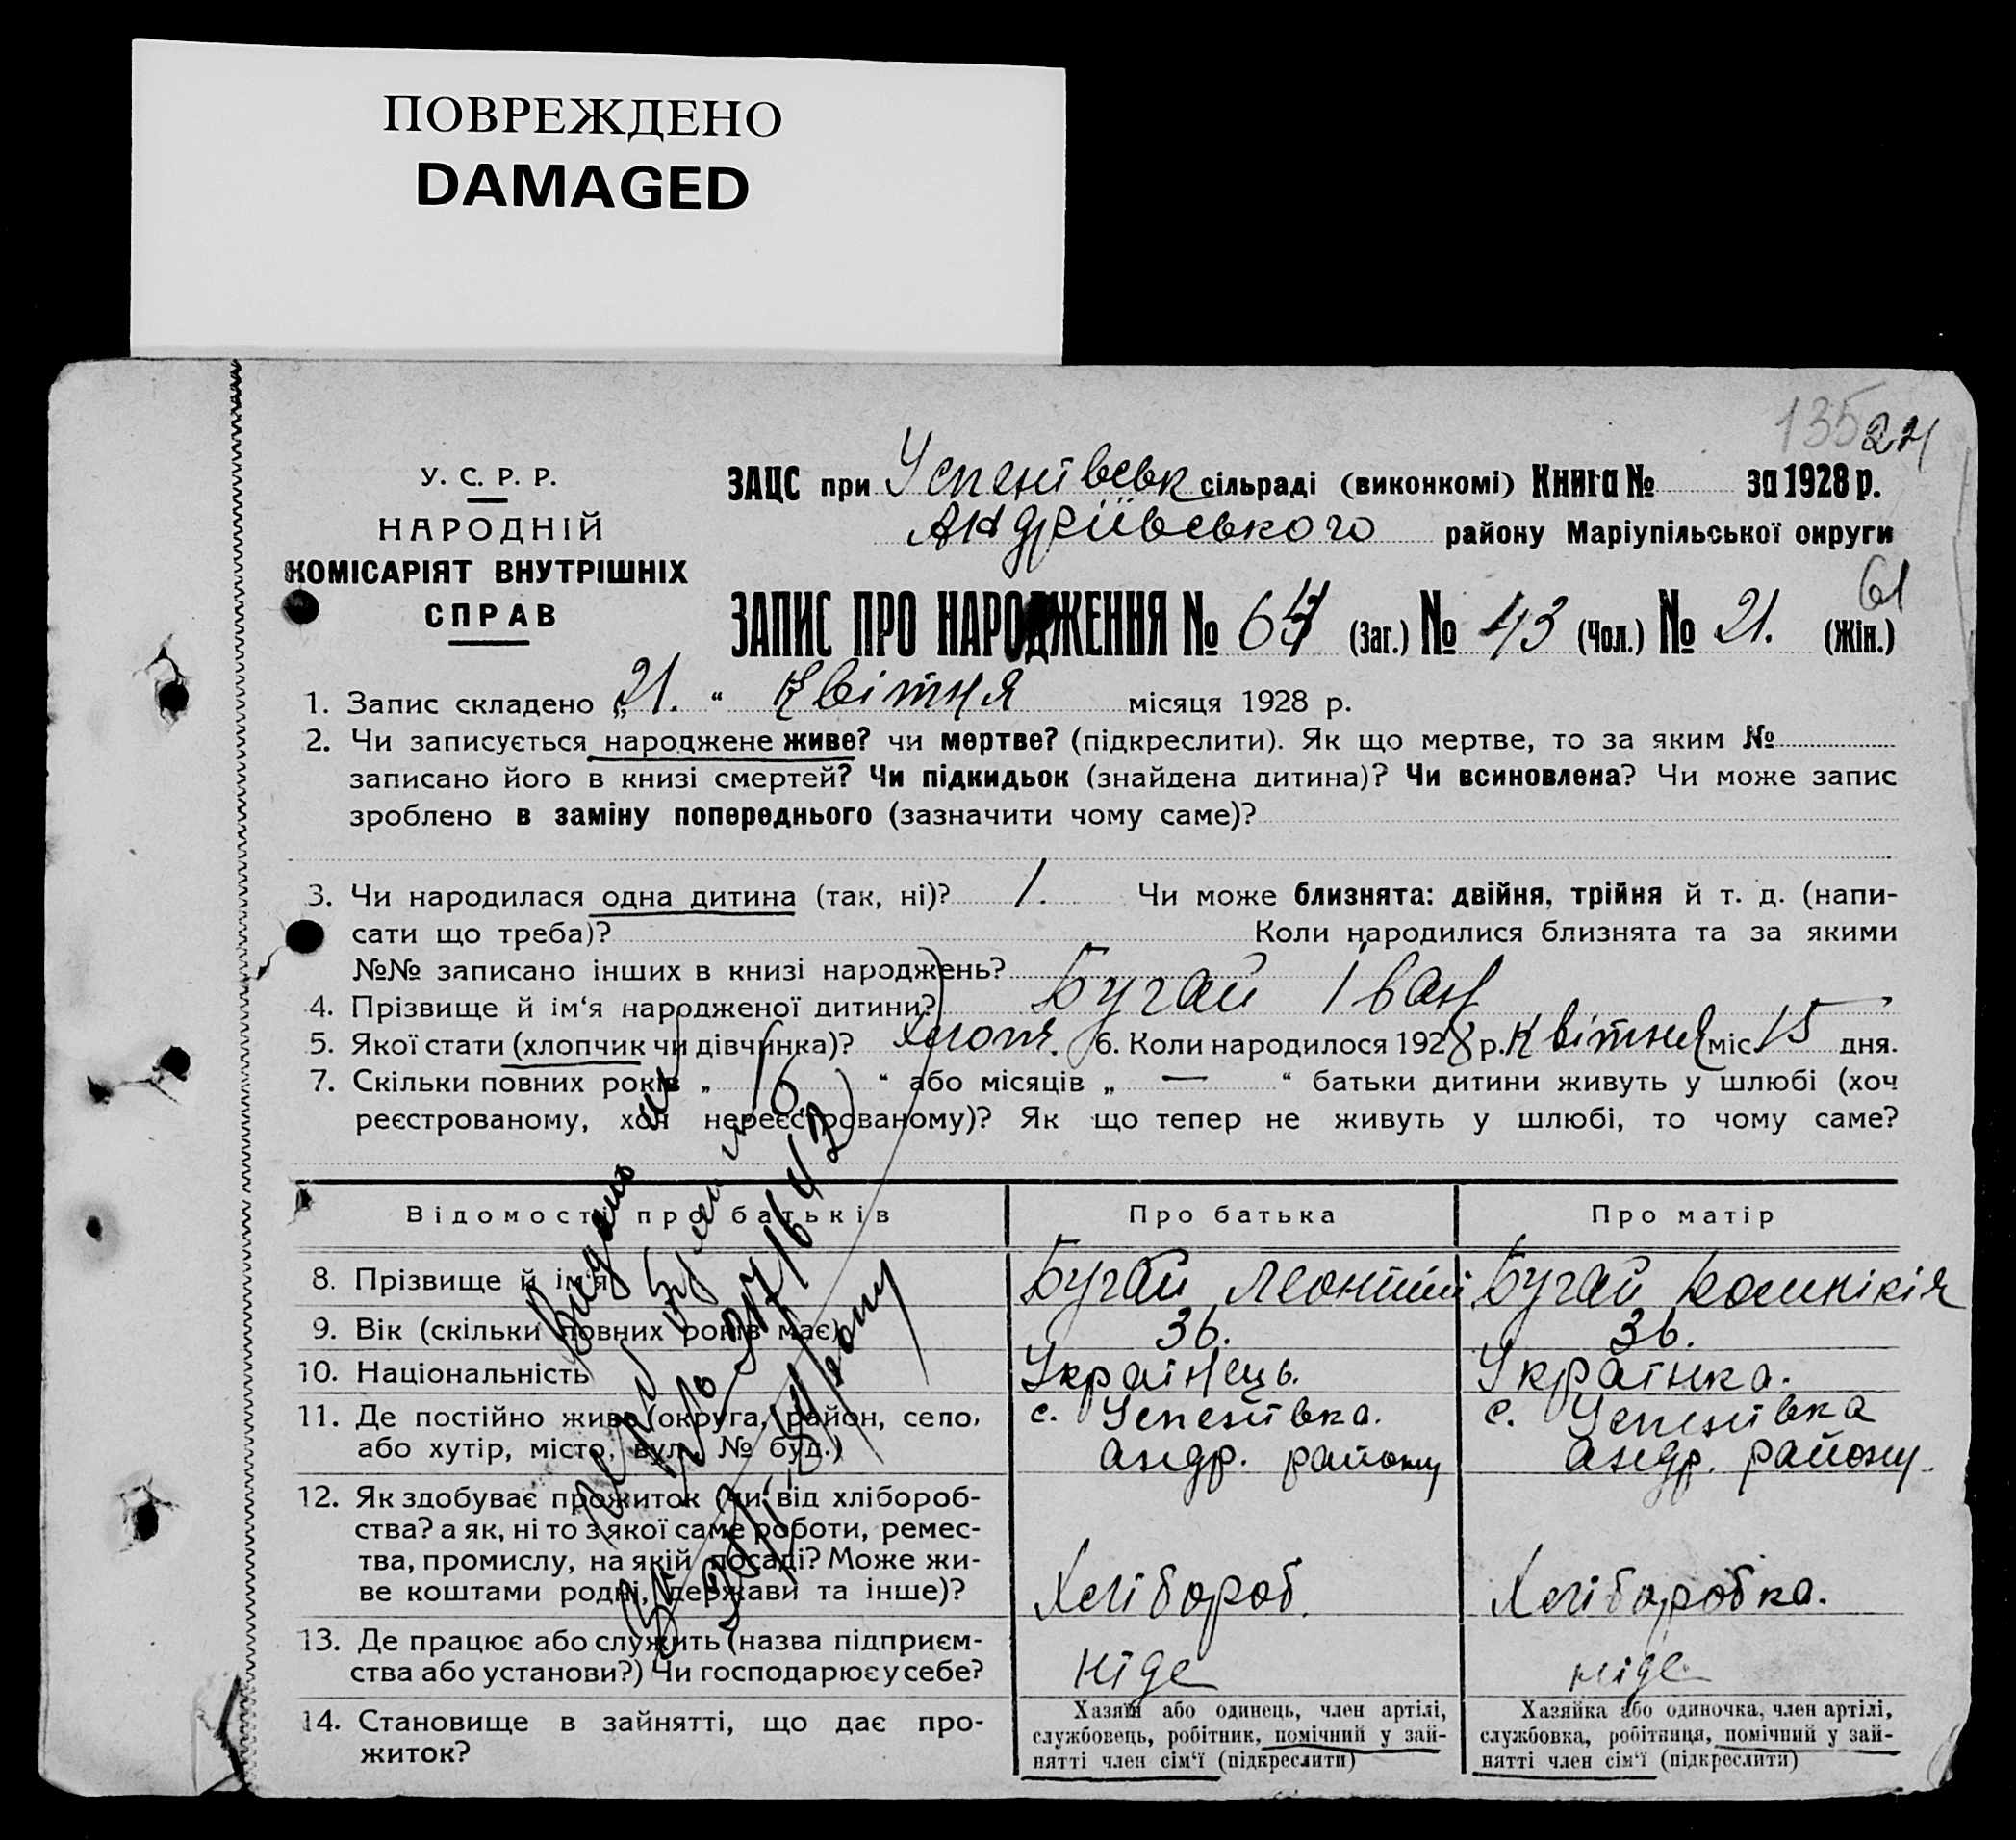 ПОВРЕЖДЕНО
DAMAGED
135 24
У. С. Р. Р.
НАРОДНІЙ
КОМІСАРІЯТ ВНУТРІШНІХ
СПРАВ
ЗАЦС при Успенівськ сільраді (виконкомі) Книга № за 1928 р.
Андріївського району Маріупільської округи
61
ЗАПИС ПРО НАРОДЖЕННЯ № 64 (Заг.) № 43 (Чол.) № 21. (Жін.)
1. Запис складено „21.“ Квітня місяця 1928 р.
2. Чи записується народжене живе? чи мертве? (підкреслити). Як що мертве, то за яким №
записано його в книзі смертей? Чи підкидьок (знайдена дитина)? Чи всиновлена? Чи може запис
зроблено в заміну попереднього (зазначити чому саме)?
3. Чи народилася одна дитина (так, ні)? 1. Чи може близнята: двійня, трійня й т. д. (напи-
сати що треба)? Коли народилися близнята та за якими
№№ записано інших в книзі народжень?
4. Прізвище й ім‘я народженої дитини? Бугай Іван
5. Якої стати (хлопчик чи дівчинка)? хлопч. 6. Коли народилося 1928 р. Квітня міс. 15 дня.
7. Скільки повних років „ 16 “ або місяців „ — “ батьки дитини живуть у шлюбі (хоч
реєстрованому, хоч нереєстрованому)? Як що тепер не живуть у шлюбі, то чому саме?
Відомості про батьків Про батька Про матір
8. Прізвище й ім‘я Бугай Леонтій Бугай
9. Вік (скільки повних років має) 36. 36.
10. Національність Українець. Українка.
11. Де постійно живе (округа, район, село, с. Успенівка. с. Успенівка
або хутір, місто, вул. № буд.) Андр. району Андр. району.
12. Як здобуває прожиток (чи від хлібороб-
ства? а як, ні то з якої саме роботи, ремес-
тва, промислу, на якій посаді? Може жи-
ве коштами родні, держави та інше)? Хлібороб. Хлiборобка.
13. Де працює або служить (назва підприєм-
ства або установи?) Чи господарює у себе? Ніде ніде
14. Становище в зайнятті, що дає про-
житок?
Хазяїн або одинець, член артілі,
службовець, робітник, помічний у зай-
нятті член сім‘ї (підкреслити)
Хазяйка або одиночка, член артілі,
службовка, робітниця, помічний у зай-
нятті член сім‘ї (підкреслити)